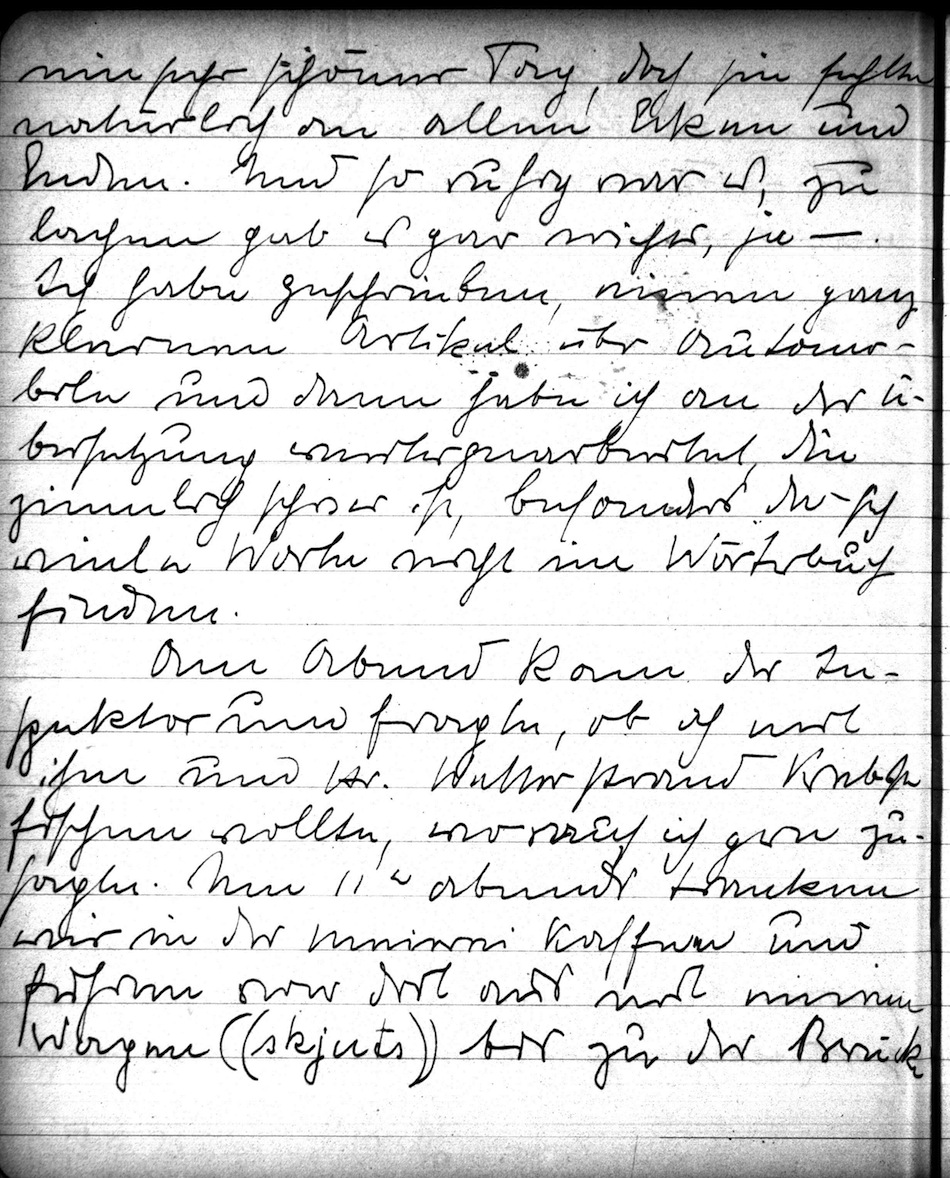 ein sehr schöner Tag, doch sie fehlte
natürlich an allen Ecken und
Enden. Und so ruhig war es, zu
lachen gab es gar nichts, ja —.
Ich habe geschrieben, einen ganz
kleinen Artikel über Automo-
bile und dann habe ich an der Ü-
bersetzung weitergearbeitet, die
ziemlich schwer ist, besonders da sich
viele Worte nicht im Wörterbuch
finden.
Am Abend kam der In-
spektor und fragte, ob ich mit
ihm und Hr. Krebse
fischen wollte, wozu ich gern zu-
sagte. Um 11 abends tranken
wir in der Meierei Kaffee und
fuhren von dort aus mit einem
Wagen ((skjuts)) bis zu der Brücke